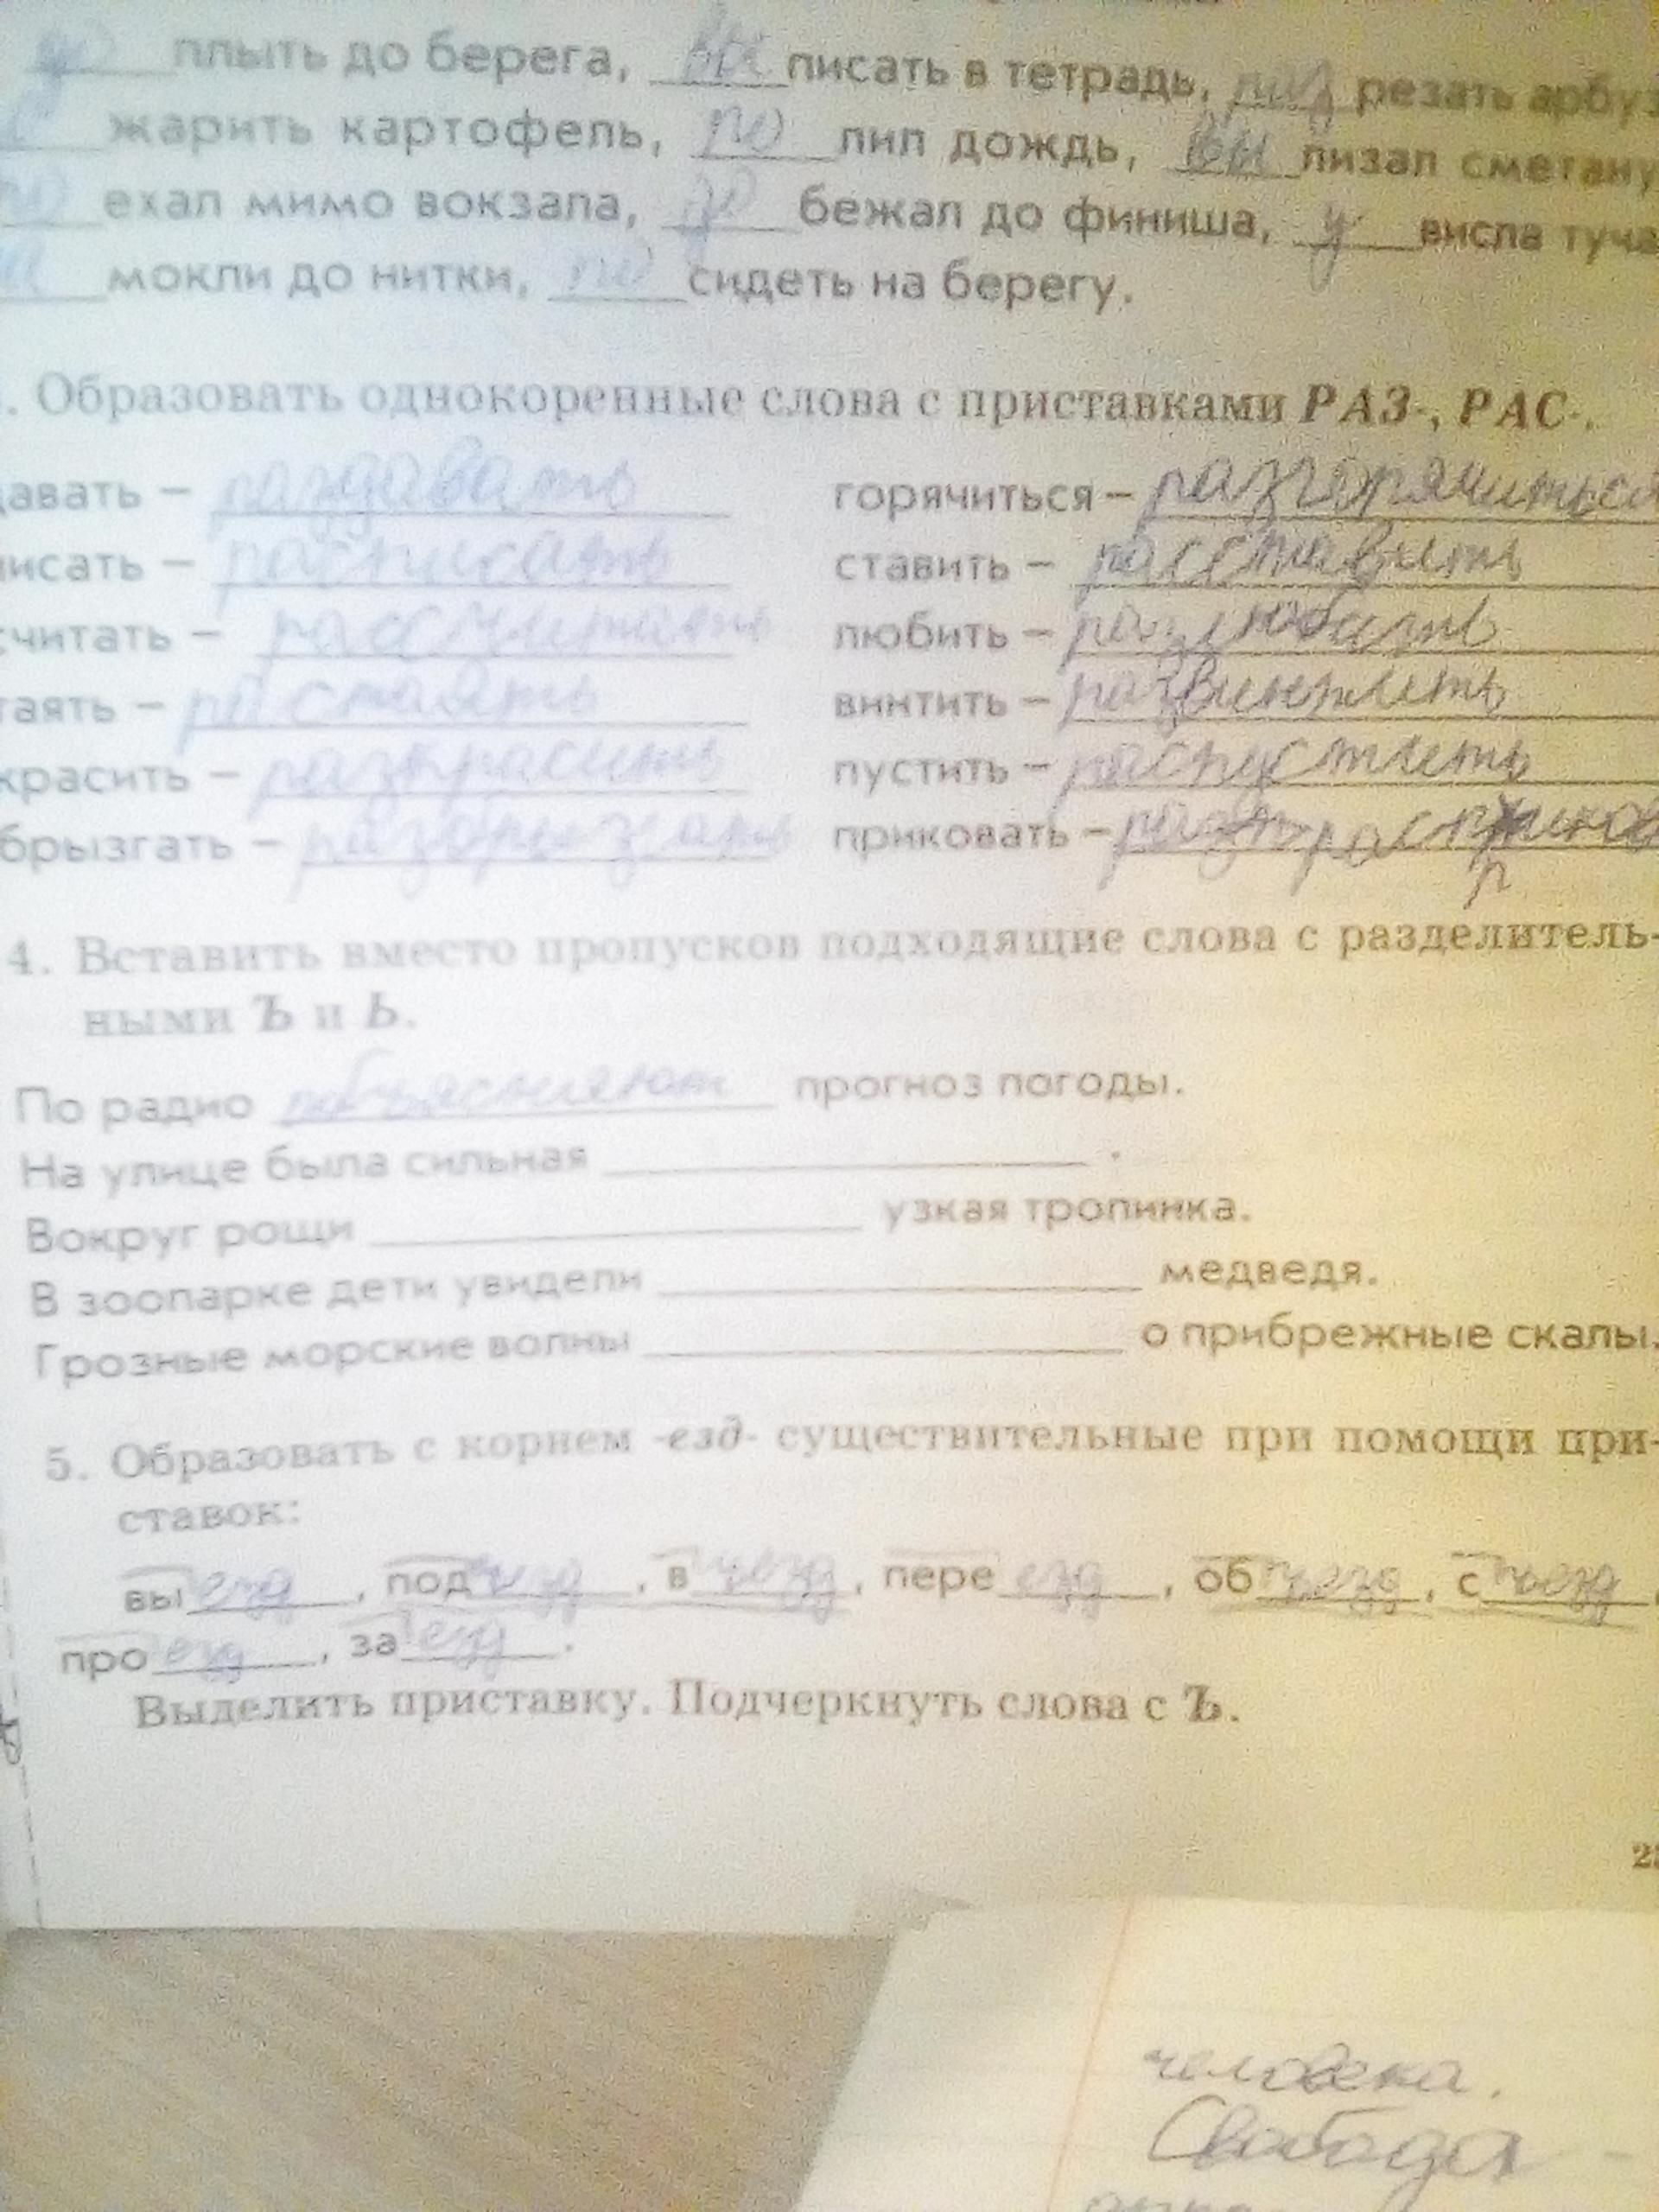 до плыть до берега, вы писать в тетрадь, раз резать арбуз
жарить картофель, по лил дождь, вы лизал сметану
ехал мимо вокзала, до бежал до финиша, у висла туча
мокли до нитки, по сидеть на берегу.
. Образовать однокоренные слова с приставками РАЗ-, РАС-.
давать – раздавать горячиться – разгорячиться
писать – расписать ставить – расставить
считать – рассчитать любить – разлюбить
таять – растаять винтить – развинтить
красить – разкрасить пустить – распустить
брызгать – приковать –
4. Вставить вместо пропусков подходящие слова с разделитель-
ными Ъ и Ь.
По радио прогноз погоды.
На улице была сильная .
Вокруг рощи узкая тропинка.
В зоопарке дети увидели медведя.
Грозные морские волны о прибрежные скалы.
5. Образовать с корнем -езд- существительные при помощи при-
ставок:
вы езд , под ъезд , в ъезд , пере езд , об ъезд , с ъезд ,
про езд , за езд .
Выделить приставку. Подчеркнуть слова с Ъ.
человека.
Свобода –